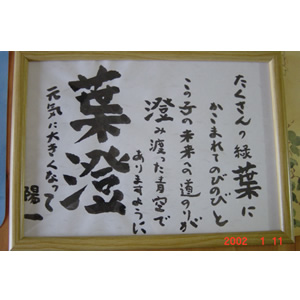 たくさんの緑葉に
かこまれてのびのびと
この子の未来への道のりが
澄み渡った青空で
ありますように
葉澄
元気に大きくなって
陽一
2002 1 11